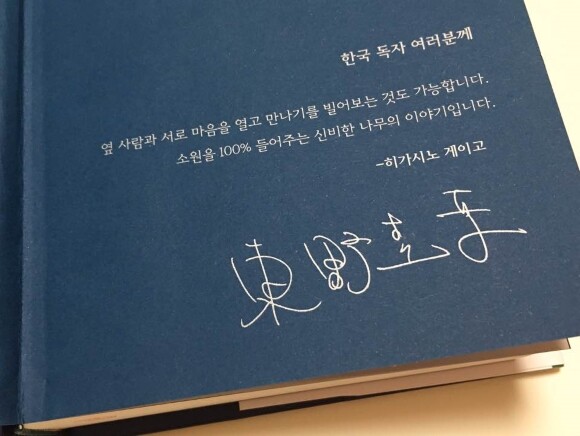 한국 독자 여러분께
옆 사람과 서로 마음을 열고 만나기를 빌어보는 것도 가능합니다.
소원을 100% 들어주는 신비한 나무의 이야기입니다.
-히가시노 게이고
東野圭吾